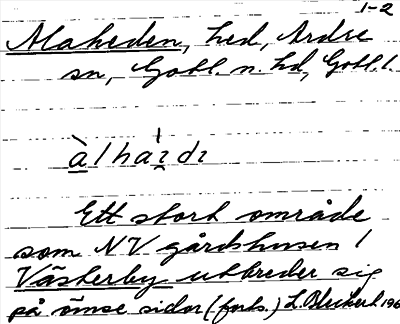 1-2
Alaheden, hed, Ardre
sn, Gotl. n. hd, Gotl. l.
àlhaꞮdı
Ett stort område
som NV gårdshusen i
Västerby utbreder sig
på ömse sidor (forts.) L. 196